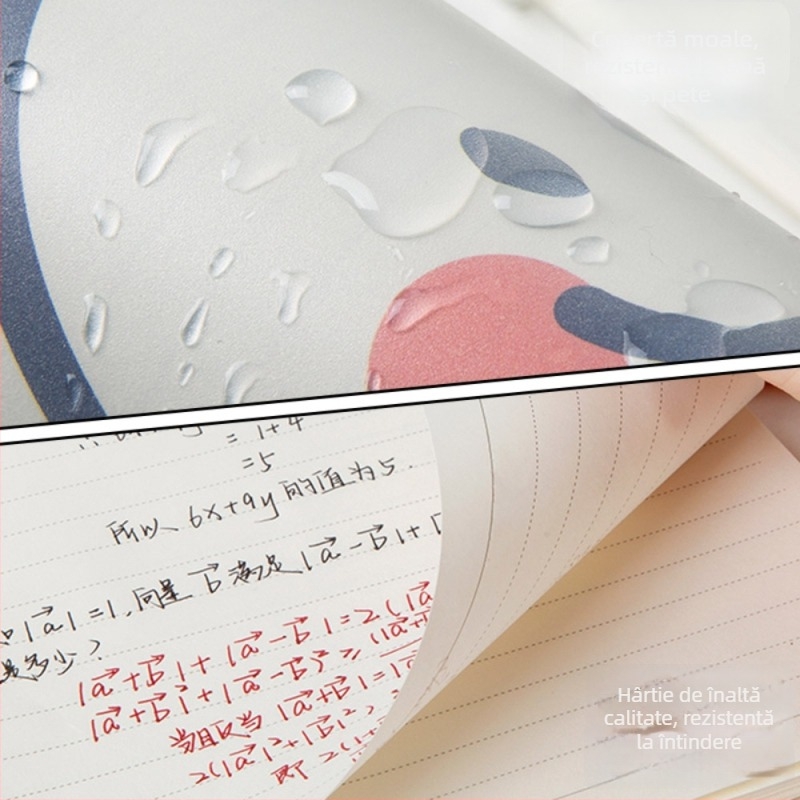 Copertă moale,
= 1+4
=5
所以, 6x+9y的值为5.
|a⃗|=1, 向量 b⃗ 满足 |a⃗-b⃗|+|
是多少?
|a⃗+b⃗|+|a⃗-b⃗|=2(|a⃗
|a⃗+b⃗|+|a⃗-b⃗|)² ≥ (|a⃗+
当且仅当 |a⃗+b⃗|=|a⃗
2(|a⃗|²+|b⃗|²)
即 2(1+
Hârtie de înaltă
calitate, rezistentă
la întindere